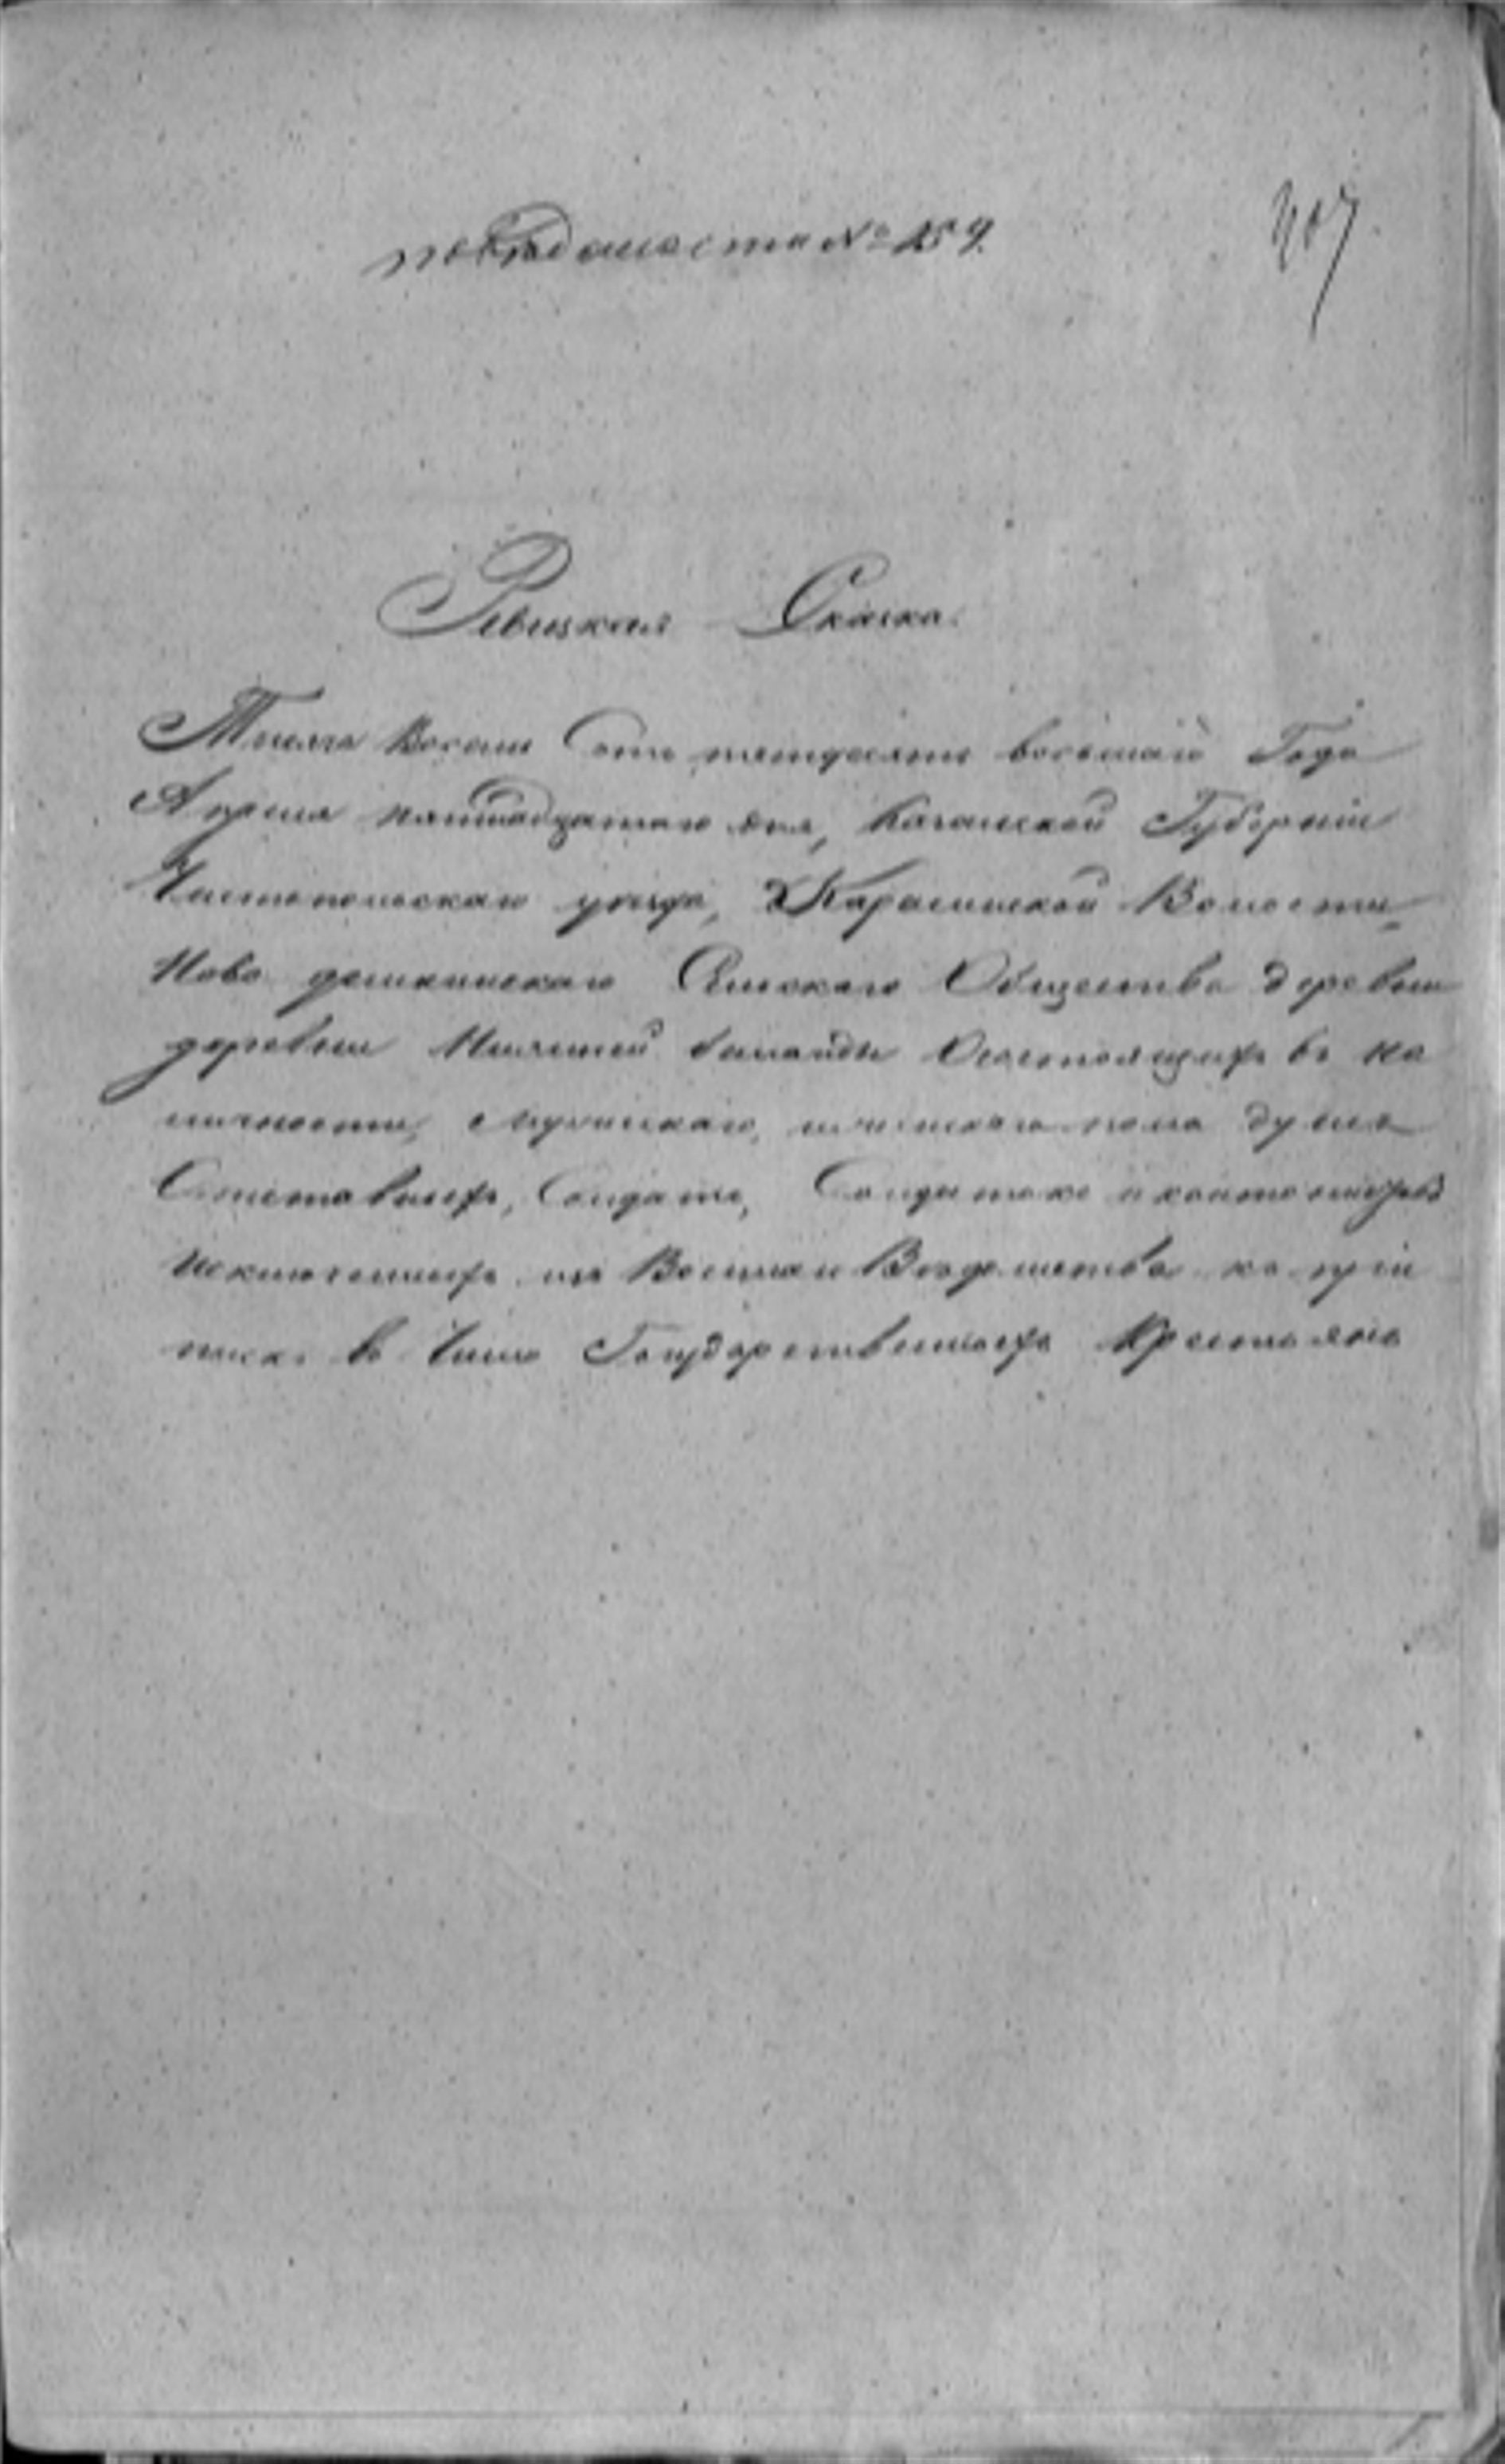 по ведомости № 459.
407.
Ревизская Сказка.
Тысяча Восемь Сотъ пятдесятъ восьмой Года
Апреля пятнадцатаго дня, Казанской Губерніи
Чистопольскаго уезда, Карасинской Волости,
Ново Сельскаго Общества деревни
деревни Состоящихъ въ на
личности, мужескаго, женскаго пола душъ
Отставныхъ, Солдатъ, Солдатокъ и кантонистовъ
исключенныхъ изъ Военнаго Ведомства къ при
писке въ число Государственныхъ Крестьянъ